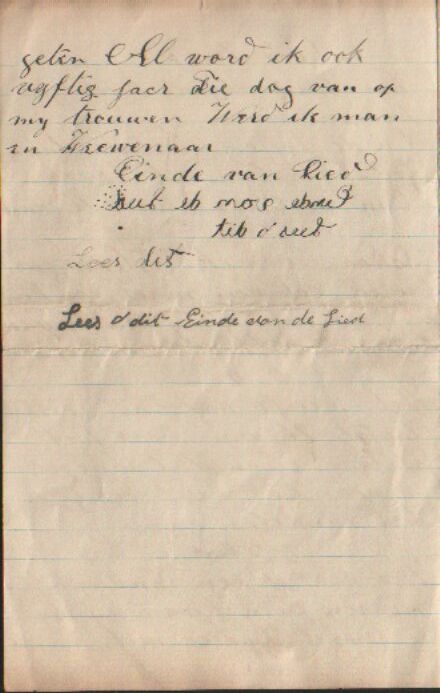 geten Al word ik ook
vyftig jaer Die dag van op
my trouwen Werd ik man
en Weewenaar
Einde van Lied
dit
Lees dit
Lees dit Einde van de Lied